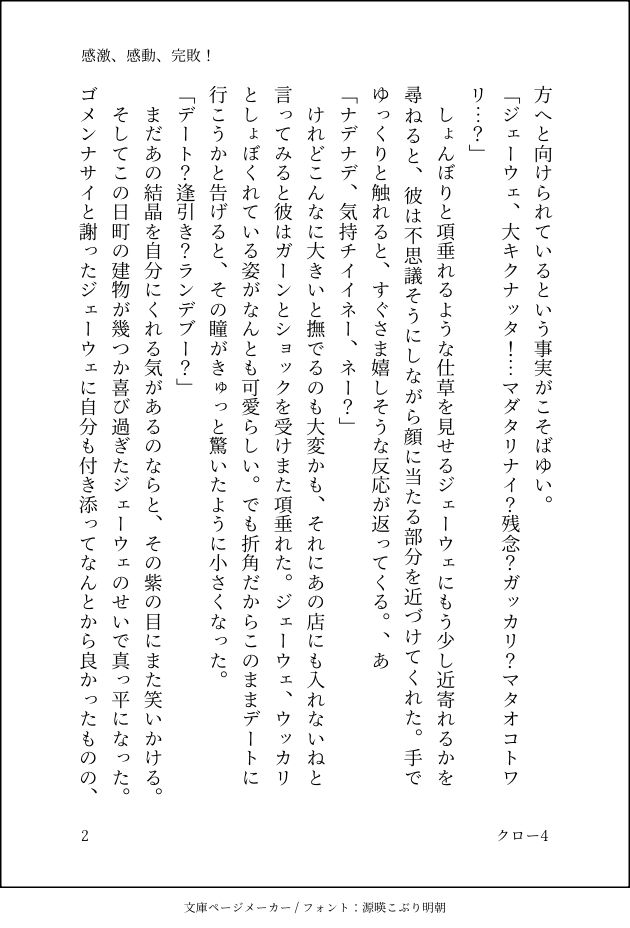 感激、感動、完敗！
方へと向けられているという事実がこそばゆい。
「ジェーウェ、大キクナッタ！…マダタリナイ？残念？ガッカリ？マタオコトワ
リ…？」
しょんぼりと項垂れるような仕草を見せるジェーウェにもう少し近寄れるかを
尋ねると、彼は不思議そうにしながら顔に当たる部分を近づけてくれた。手で
ゆっくりと触れると、すぐさま嬉しそうな反応が返ってくる。、あ
「ナデナデ、気持チイイネー、ネー？」
けれどこんなに大きいと撫でるのも大変かも、それにあの店にも入れないねと
言ってみると彼はガーンとショックを受けまた項垂れた。ジェーウェ、ウッカリ
としょぼくれている姿がなんとも可愛らしい。でも折角だからこのままデートに
行こうかと告げると、その瞳がきゅっと驚いたように小さくなった。
「デート？逢引き？ランデブー？」
まだあの結晶を自分にくれる気があるのならと、その紫の目にまた笑いかける。
そしてこの日町の建物が幾つか喜び過ぎたジェーウェのせいで真っ平になった。
ゴメンナサイと謝ったジェーウェに自分も付き添ってなんとから良かったものの、
2
クロー4
文庫ページメーカー / フォント：源暎こぶり明朝